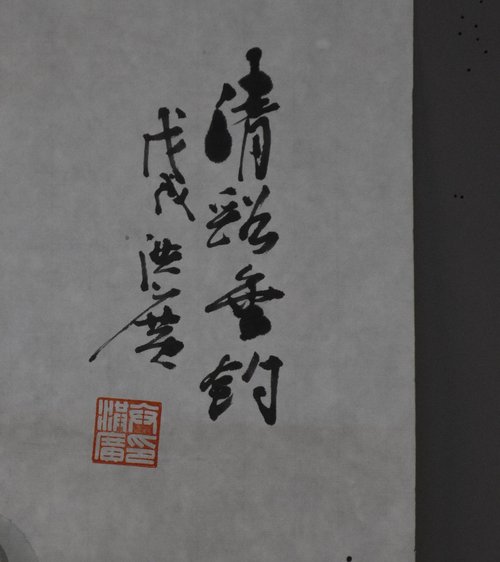 清谿垂釣
戊戌洪廣